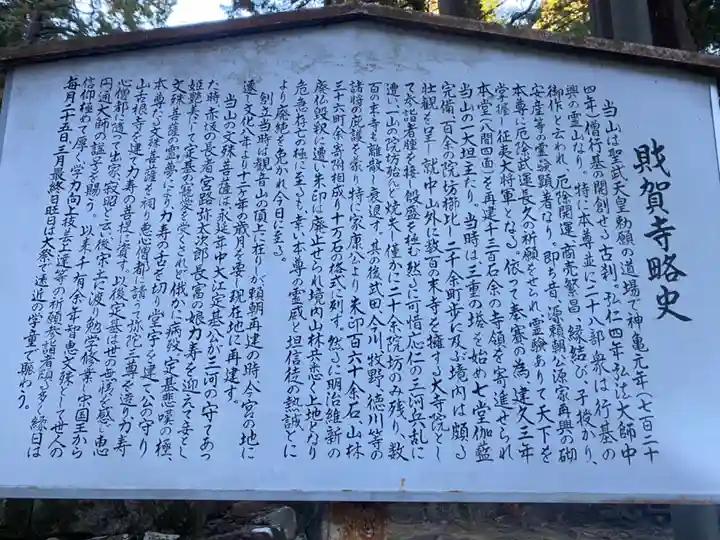 財賀寺略史
当山は聖武天皇勅願の道場で神亀元年(七百二十
四年)僧行基の開創せる古刹、弘仁四年弘法大師中
興の霊山なり。特に本尊並に二十八部衆は行基の
御作と云われ、厄除開運、商売繁昌、縁結び、子授かり、
安産等の霊験顕著なり。即ち昔源頼朝公源家再興の砌
本尊に厄除武運長久の祈願をせられ、霊験ありて天下を
掌握し征夷大将軍となる。依って奉賽の為、建久三年
本堂(八間四面)を再建千三百石余の寺領を寄進せられ
当山の一大旦主たり。当時は三重の塔を始め七堂伽藍
完備一百余の院坊櫛比し二千余町歩に及ぶ境内は頗る
壮観を呈し就中山外に数百の末寺を擁する大寺院とし
て参詣者踵を接し殷盛を極む然るに可惜応仁の三河兵乱に
遭い一山の院坊殆んど焼失し僅かに二十余院坊のみ残り、数
百の末寺も離散し衰退す。其の後武田、今川、牧野、徳川等の
諸将の庇護を蒙り、特に家康公より朱印百六十余石、山林
三十六町余寄附相成り十万石の格式に列す。然るに明治維新の
廃仏毀釈に遭い朱印は廃止せられ境内山林共悉く上地となり
危急存亡の極に至るも幸い本尊の霊威と旦信徒の熱誠とに
より廃絶を免かれ今日に至る。
創立当時は観音山の頂上に在りしが頼朝再建の時今宮の地に
遷し文化八年より十二年の歳月を要し現在地に再建す。
当山の文殊菩薩は永延年中大江定基公が三河の守であっ
た時、赤坂の長者宮路弥太次郎長富の娘力寿を迎えて妾とし
姫艶美にして定基の寵愛を受くされど俄かに病歿、定基悲嘆の極、
文殊菩薩の霊夢により力寿の舌を切り堂宇を建て公の守り
本尊たる文殊菩薩を祠り恵心僧都に請って弥陀三尊を造り力寿
山舌根寺を建て力寿の菩提に資す。以後定基は世の無情を感じ恵
心僧都に随って出家、寂昭と云、後宋に渡り勉学修業し宋国王から
円通大師の諡号を賜う。以来千有余年智恵文殊として世人の
信仰極めて厚く、学力向上、技芸上達等の祈願参詣者頗る多く縁日は
毎月二十五日三月最終日曜日は大祭で遠近の学童で賑わう。